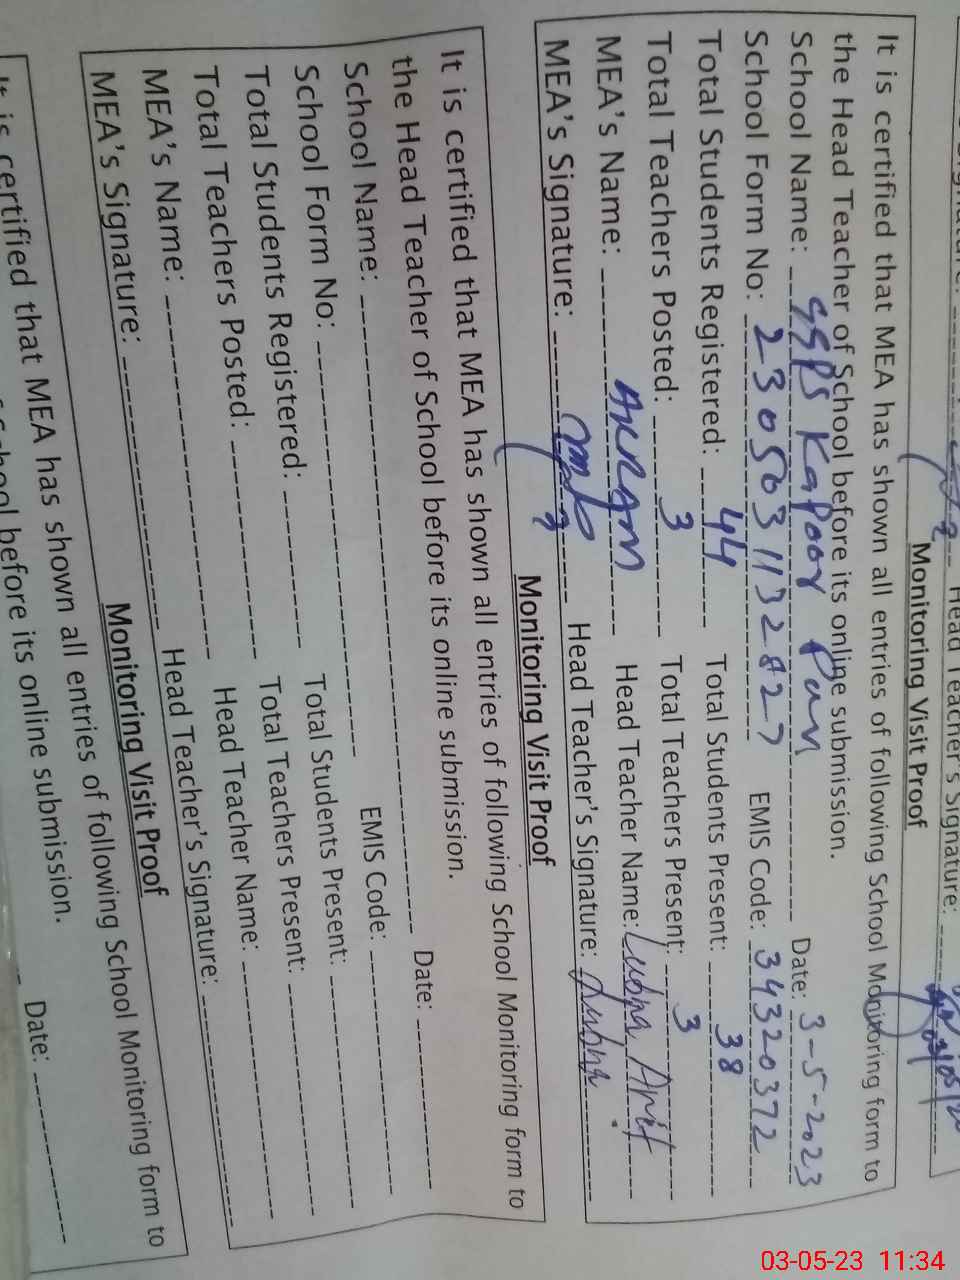 Head Teacher's Signature:
Monitoring Visit Proof
It is certified that MEA has shown all entries of following School Monitoring form to
the Head Teacher of School before its online submission.
School Name: GGPS Kapoor Pan Date: 3-5-2023
School Form No: 2305031132827 EMIS Code: 34320372
Total Students Registered: 44 Total Students Present: 38
Total Teachers Posted: 3 Total Teachers Present: 3
MEA's Name: Akram Head Teacher Name: Lubna Arif
MEA's Signature: Head Teacher's Signature: Lubna
Monitoring Visit Proof
It is certified that MEA has shown all entries of following School Monitoring form to
the Head Teacher of School before its online submission.
School Name: Date:
School Form No: EMIS Code:
Total Students Registered: Total Students Present:
Total Teachers Posted: Total Teachers Present:
MEA's Name: Head Teacher Name:
MEA's Signature: Head Teacher's Signature:
Monitoring Visit Proof
It is certified that MEA has shown all entries of following School Monitoring form to
School before its online submission.
Date:
03-05-23 11:34